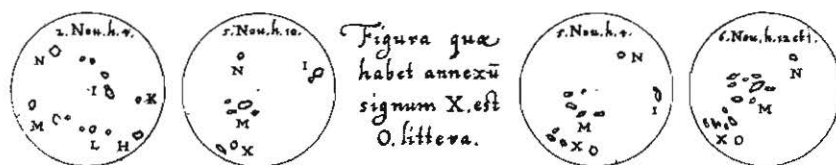 2. Nou. h. 4.
N
I
K
M
L
H
5. Nou. h. 10.
N
I
M
X
Figura quæ
habet annexū
signum X. est
O. littera.
5. Nou. h. 4.
N
I
M
X
6. Nou. h. 12 et 1.
N
M
X